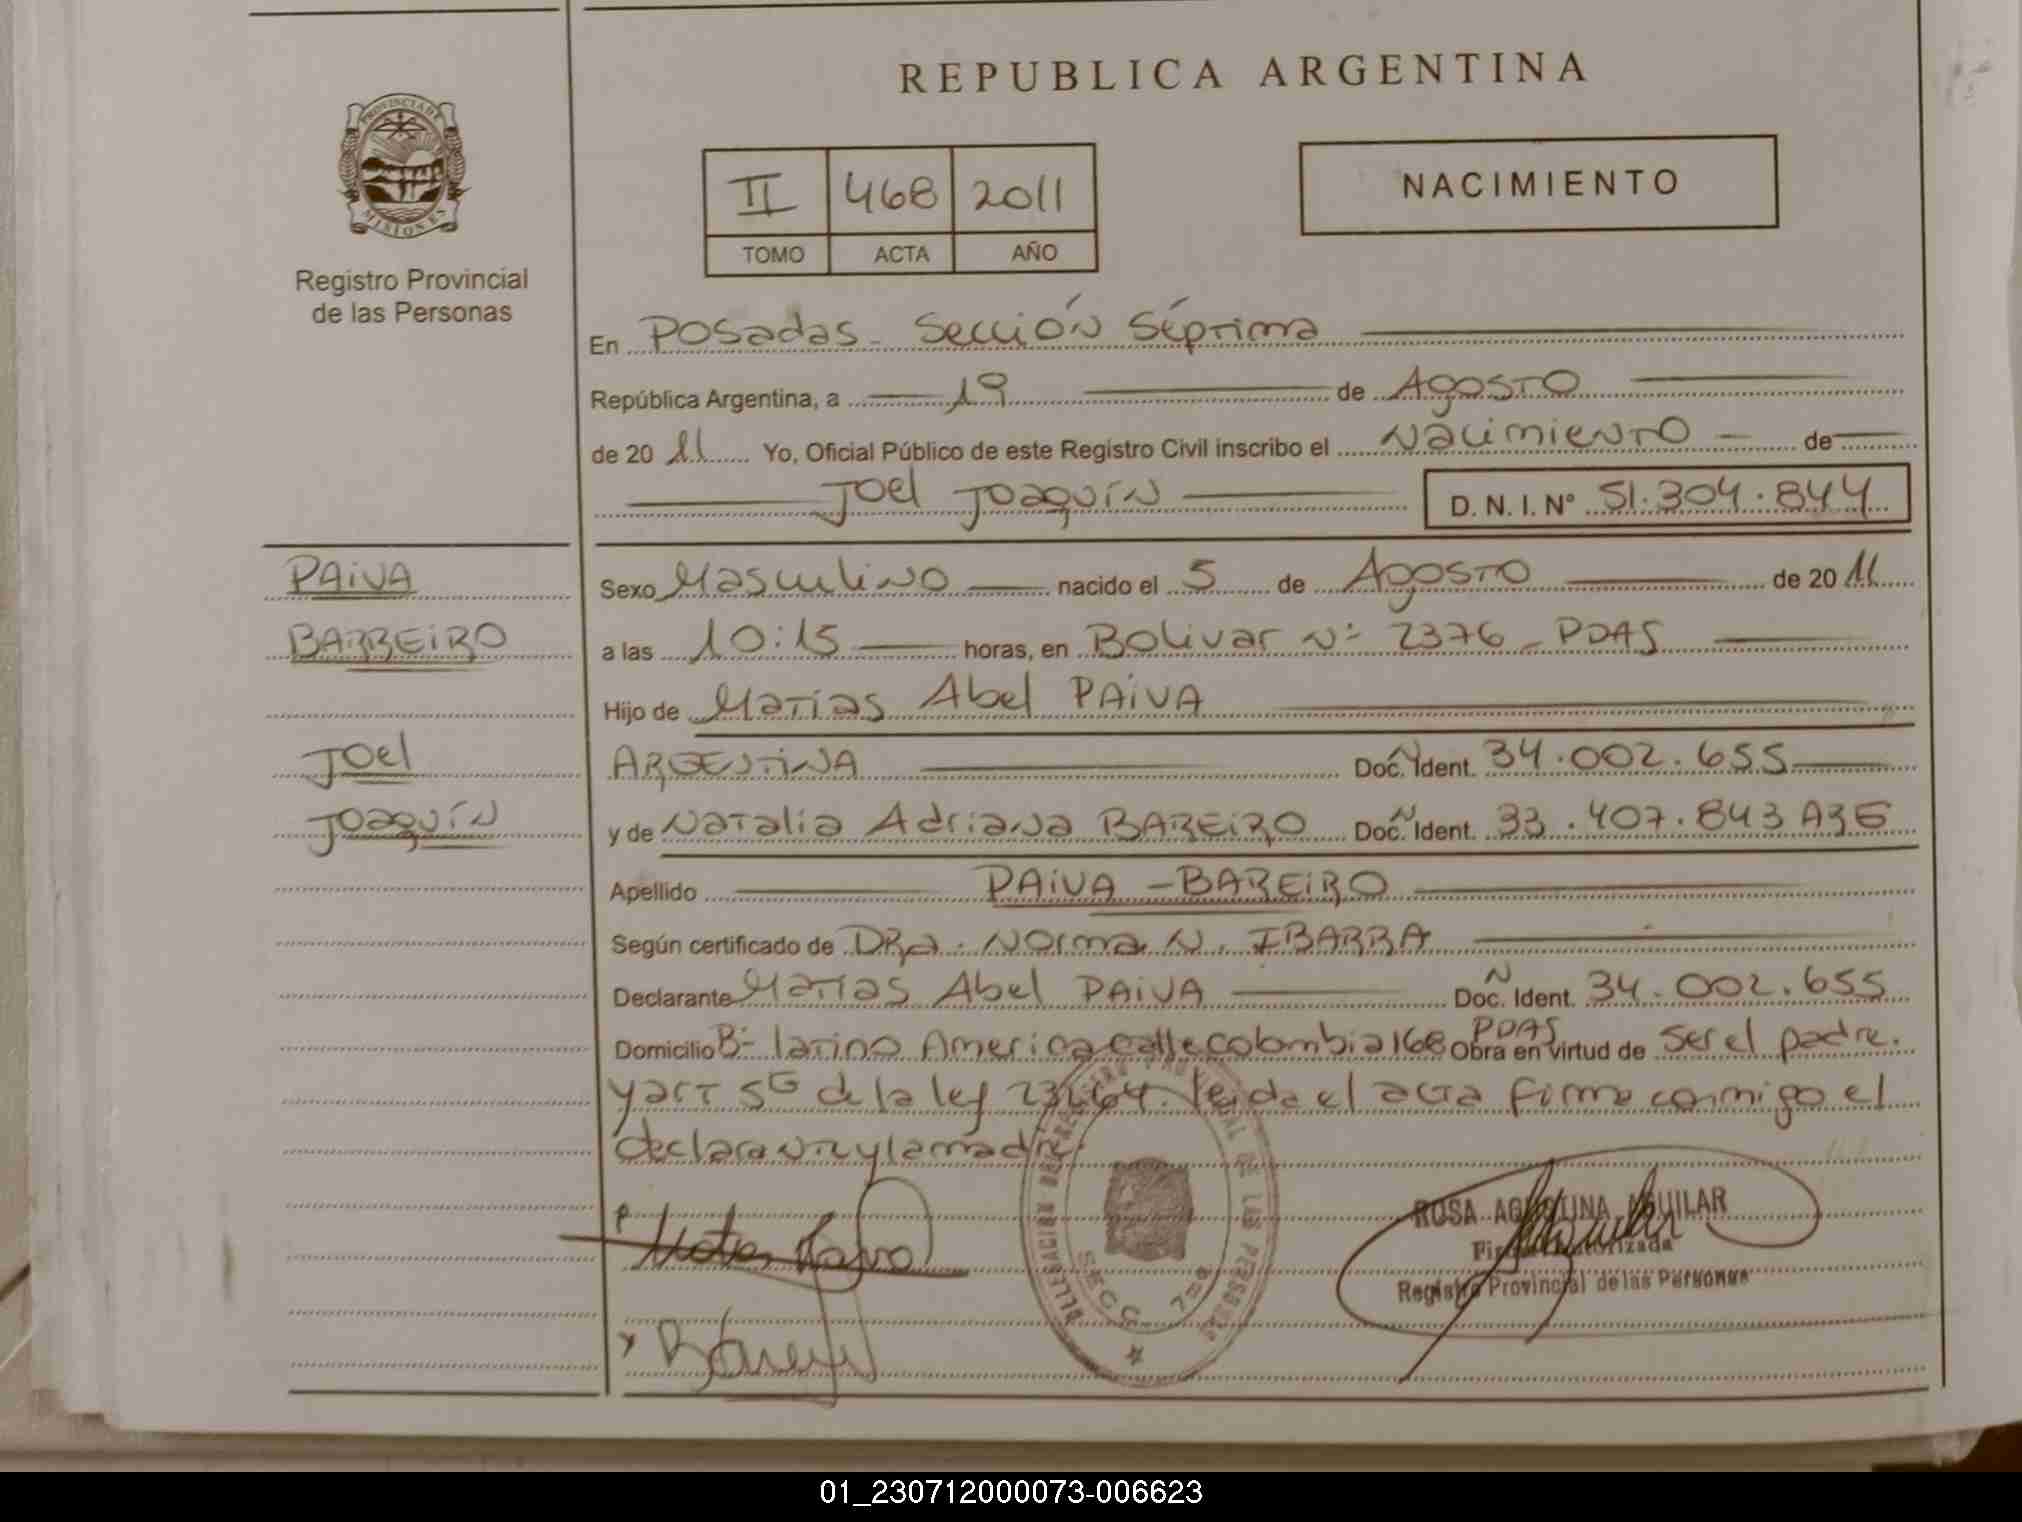 REPUBLICA ARGENTINA
PROVINCIA DE MISIONES
Registro Provincial
de las Personas
II 468 2011
TOMO ACTA AÑO
NACIMIENTO
En Posadas - Sección Séptima
República Argentina, a 19 de Agosto
de 20 11 Yo, Oficial Público de este Registro Civil inscribo el Nacimiento de
Joel Joaquín D. N. I. Nº 51.304.844
PAIVA
BARREIRO
Joel
Joaquín
Sexo Masculino nacido el 5 de Agosto de 20 11
a las 10:15 horas, en Bolivar Nº 2376 - PDAS
Hijo de Matías Abel PAIVA
ARGENTINA Doc. Ident. N 34.002.655
y de Natalia Adriana BAREIRO Doc. Ident. N 33.407.843 ARG
Apellido PAIVA - BAREIRO
Según certificado de DRA. Norma N. IBARRA
Declarante Matías Abel PAIVA Doc. Ident. N 34.002.655
Domicilio Bº latino America calle colombia 168 PDAS Obra en virtud de ser el padre.
y art 5º de la ley 23264. leida el acta firma conmigo el
declarante y la madre
DELEGACION DEL REGISTRO PROVINCIAL DE LAS PERSONAS
SECC. 7ma
ROSA AGUSTINA AGUILAR
Firma Autorizada
Registro Provincial de las Personas
01_230712000073-006623